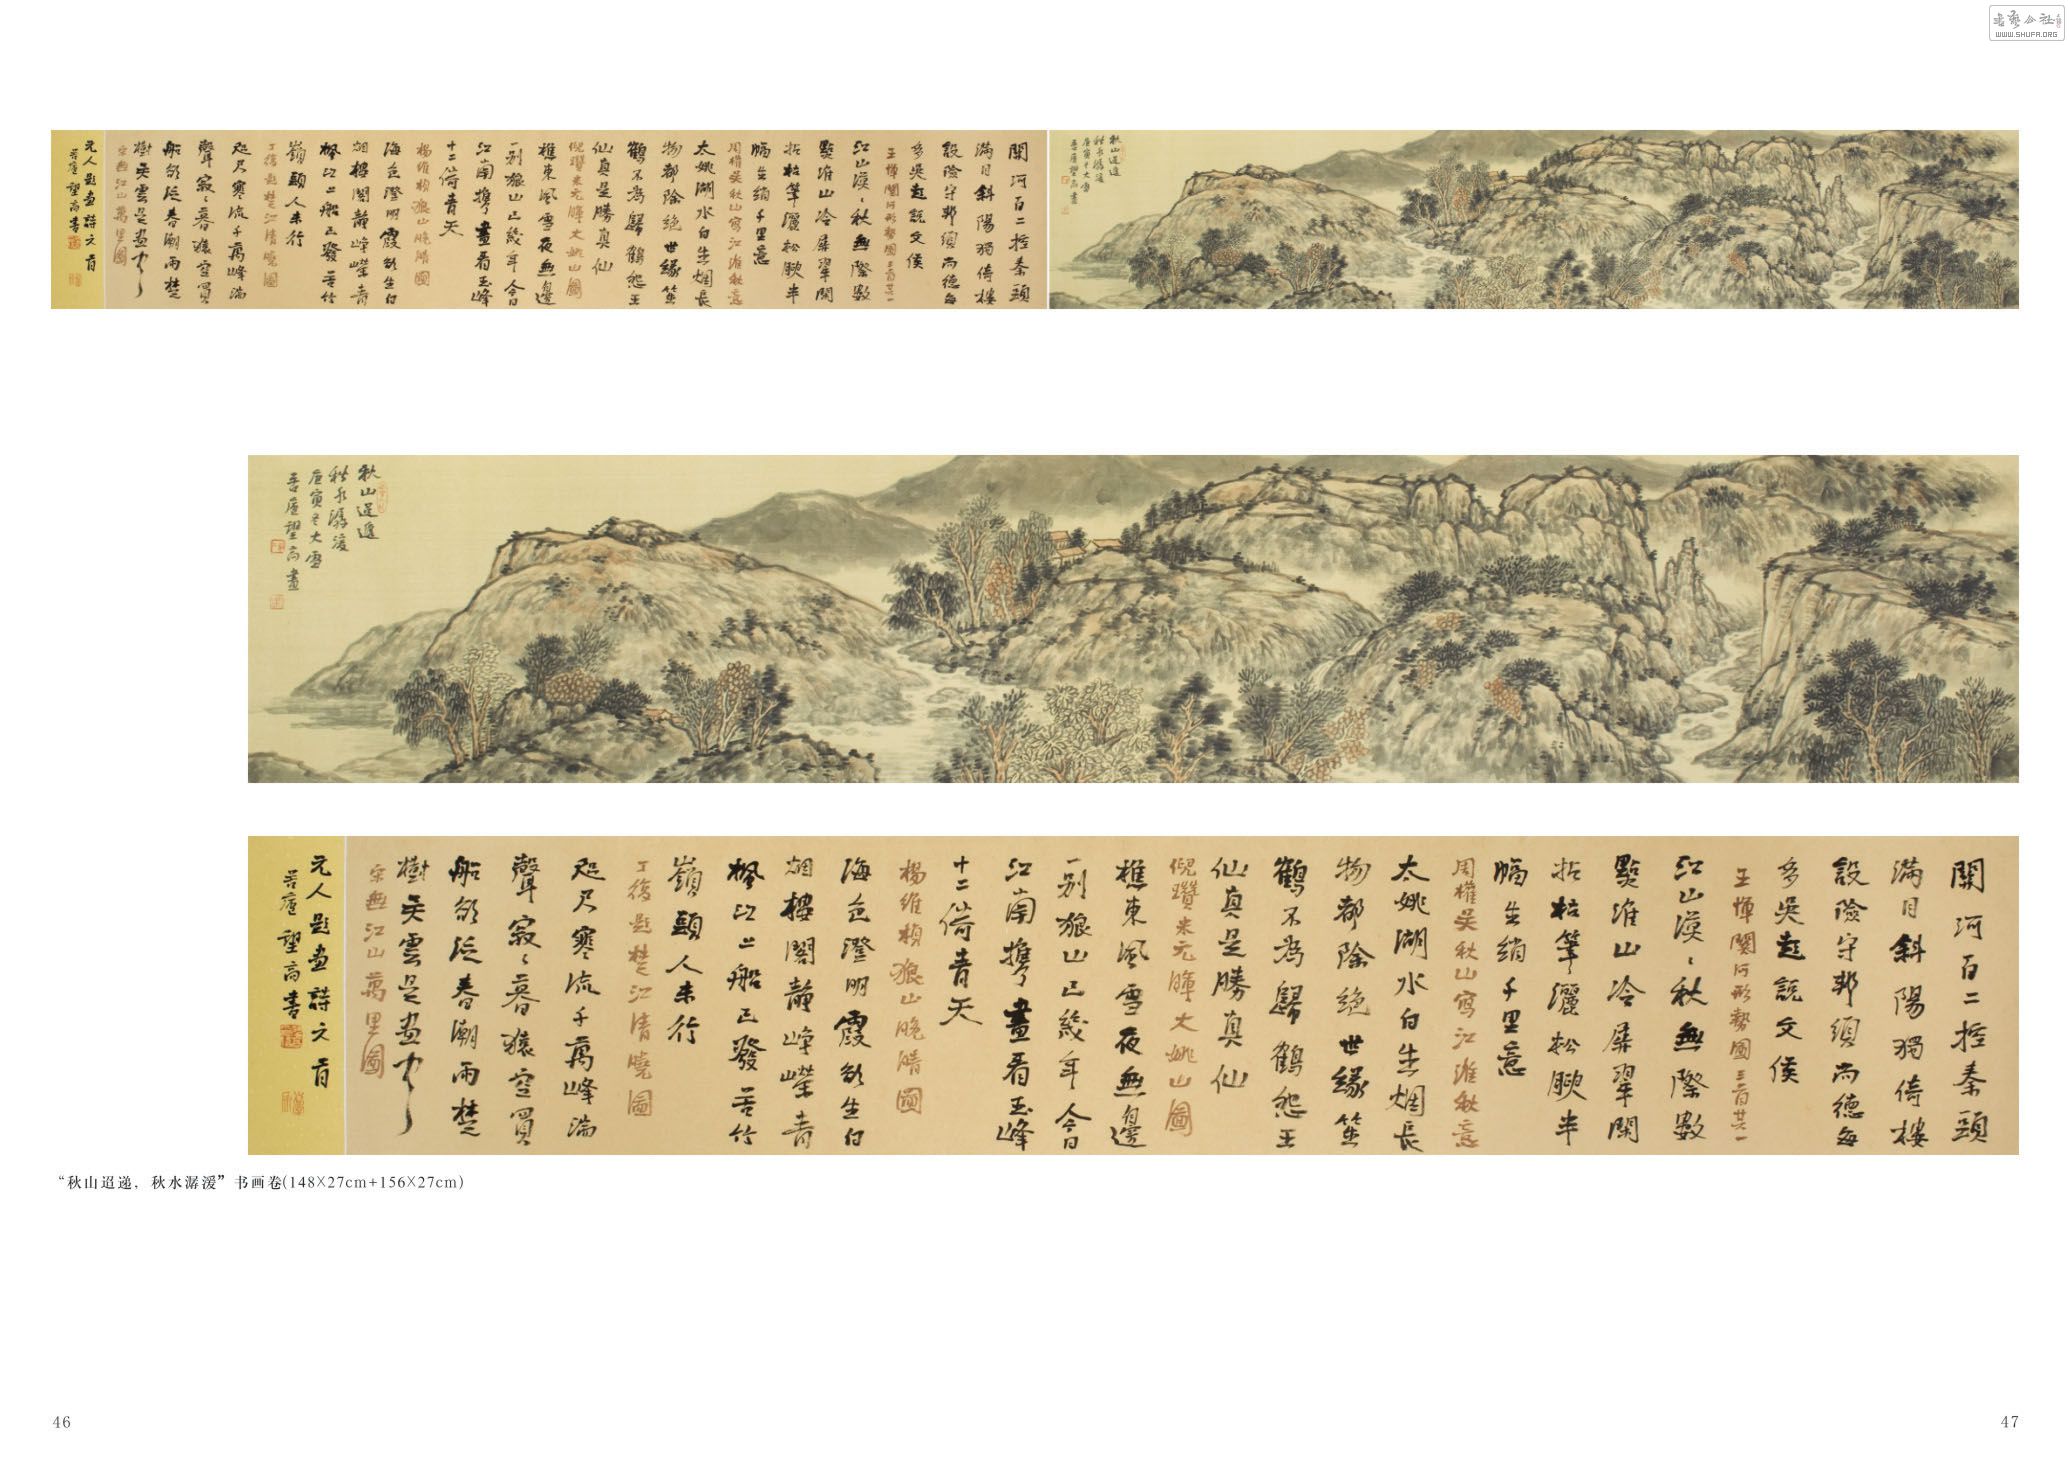 书艺公社
WWW.SHUFA.ORG
秋山迢遞
秋水潺湲
庚寅冬大雪
菩廬望高畫
關河百二控秦頭
滿目斜陽獨倚樓
設險守邦須尚德每
多吳起說文侯
王惲關河形勢圖三首其一
江山漠、秋無際數
點淮山冷屏翠開
拈枯筆灑松腴半
幅生綃千里意
周權吳秋山寫江淮秋意
太姚湖水白生煙長
物都除絕世緣筮
鶴不為歸鶴怨王
仙真是勝真仙
倪瓚米元暉大姚山圖
樵東風雪夜無邊
一別狼山已幾年今日
江南攜畫看玉峰
十二倚青天
楊維楨狼山晚晴圖
海色澄明霞欲生白
烟樓閣靜崢嶸青
楓江上船已發苦竹
嶺頭人未行
丁復題楚江清曉圖
咫尺寒流千萬峰湍
聲寂、暮猿空買
船欲泛春潮雨楚
樹吳雲是畫中
宋無江山萬里圖
元人題畫詩六首
菩廬望高書
“秋山迢递，秋水潺湲”书画卷(148×27cm+156×27cm)
46
47